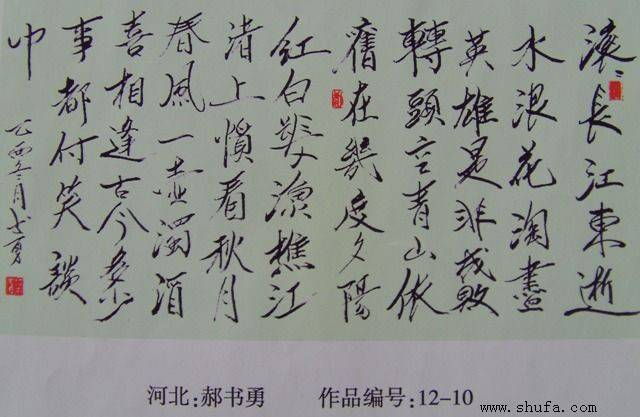 滚々長江東逝
水浪花淘盡
英雄是非成敗
轉頭空青山依
舊在幾度夕陽
紅白髮漁樵江
渚上慣看秋月
春風一壶濁酒
喜相逢古今多少
事都付笑談
中
乙酉月书勇
河北:郝书勇 作品编号:12-10
www.shufa.com